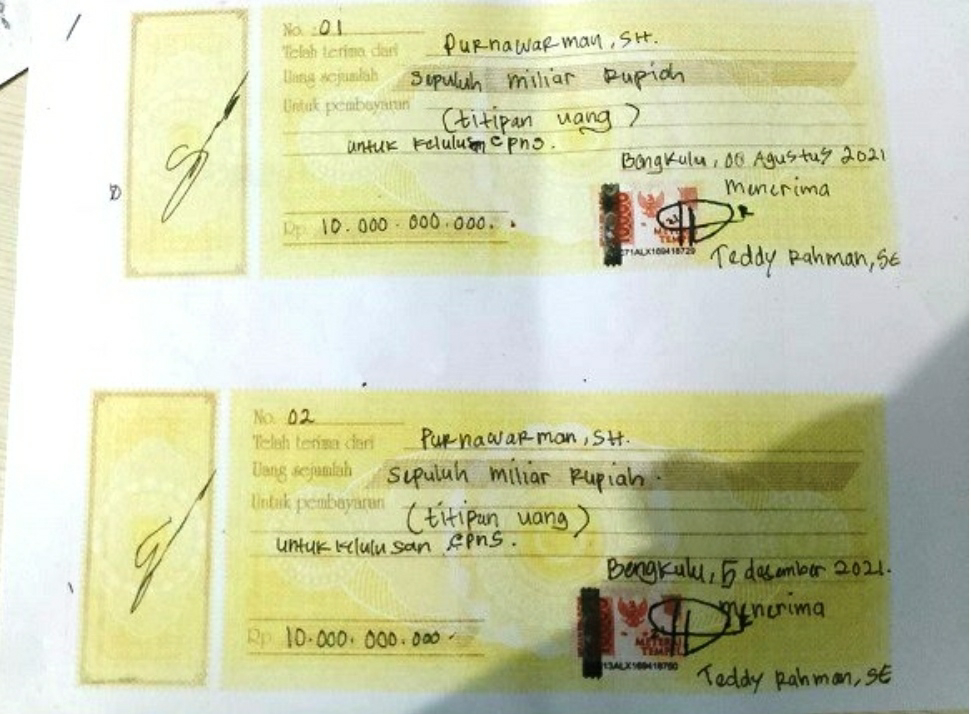 No. 01
Telah terima dari Purnawarman, SH.
Uang sejumlah Sepuluh miliar Rupiah
Untuk pembayaran (titipan uang)
untuk kelulusan cpns.
Bengkulu, 06 Agustus 2021
Menerima
Rp. 10.000.000.000.
10000
METERAI
TEMPEL
71ALX169418729
Teddy Rahman, SE
No. 02
Telah terima dari Purnawarman, SH.
Uang sejumlah Sepuluh miliar Rupiah.
Untuk pembayaran (titipan uang)
untuk kelulusan cpns.
Bengkulu, 5 desember 2021.
Menerima
Rp. 10.000.000.000
METERAI
TEMPEL
13ALX169418760
Teddy Rahman, SE